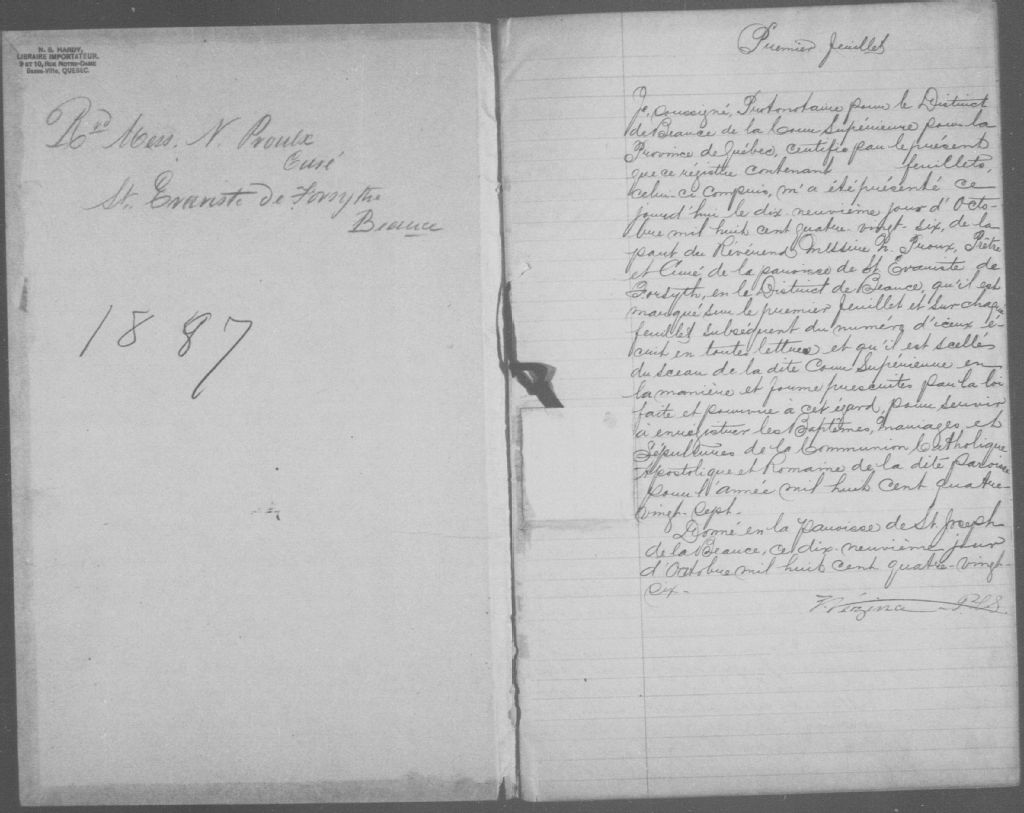 N. S. HARDY,
LIBRAIRE IMPORTATEUR.
9 ET 10, RUE NOTRE-DAME
Basse-Ville, QUEBEC.
Rvd Mess. N. Proulx
Curé
St. Evariste de Forsythe
Beauce
1887
Premier feuillet
Je, soussigné, Protonotaire pour le District
de Beauce de la Cour Supérieure pour la
Province de Québec, certifie par le présent
que ce régistre contenant feuillets,
celui-ci compris, m'a été présenté ce
jourd'hui le dix-neuvième jour d'Octo-
bre mil huit cent quatre-vingt-six, de la
part du Révérend Messire N. Proux, Prêtre
et Curé de la paroisse de St Evariste de
Forsyth, en le District de Beauce, qu'il est
marqué sur le premier feuillet et sur chaque
feuillet subséquent du numéro d'iceux é-
crit en toutes lettres et qu'il est scellés
du sceau de la dite Cour Supérieure en
la manière et forme prescrites par la loi
faite et pourvue à cet égard, pour servir
à enregistrer les Baptêmes, Mariages, et
Sépultures de la Communion Catholique
Apostolique et Romaine de la dite paroisse
pour l'année mil huit cent quatre-
vingt-sept.
Donné en la paroisse de St Joseph
de la Beauce, ce dix-neuvième jour
d'Octobre mil huit cent quatre-vingt-
six.
Vézina P.C.S.